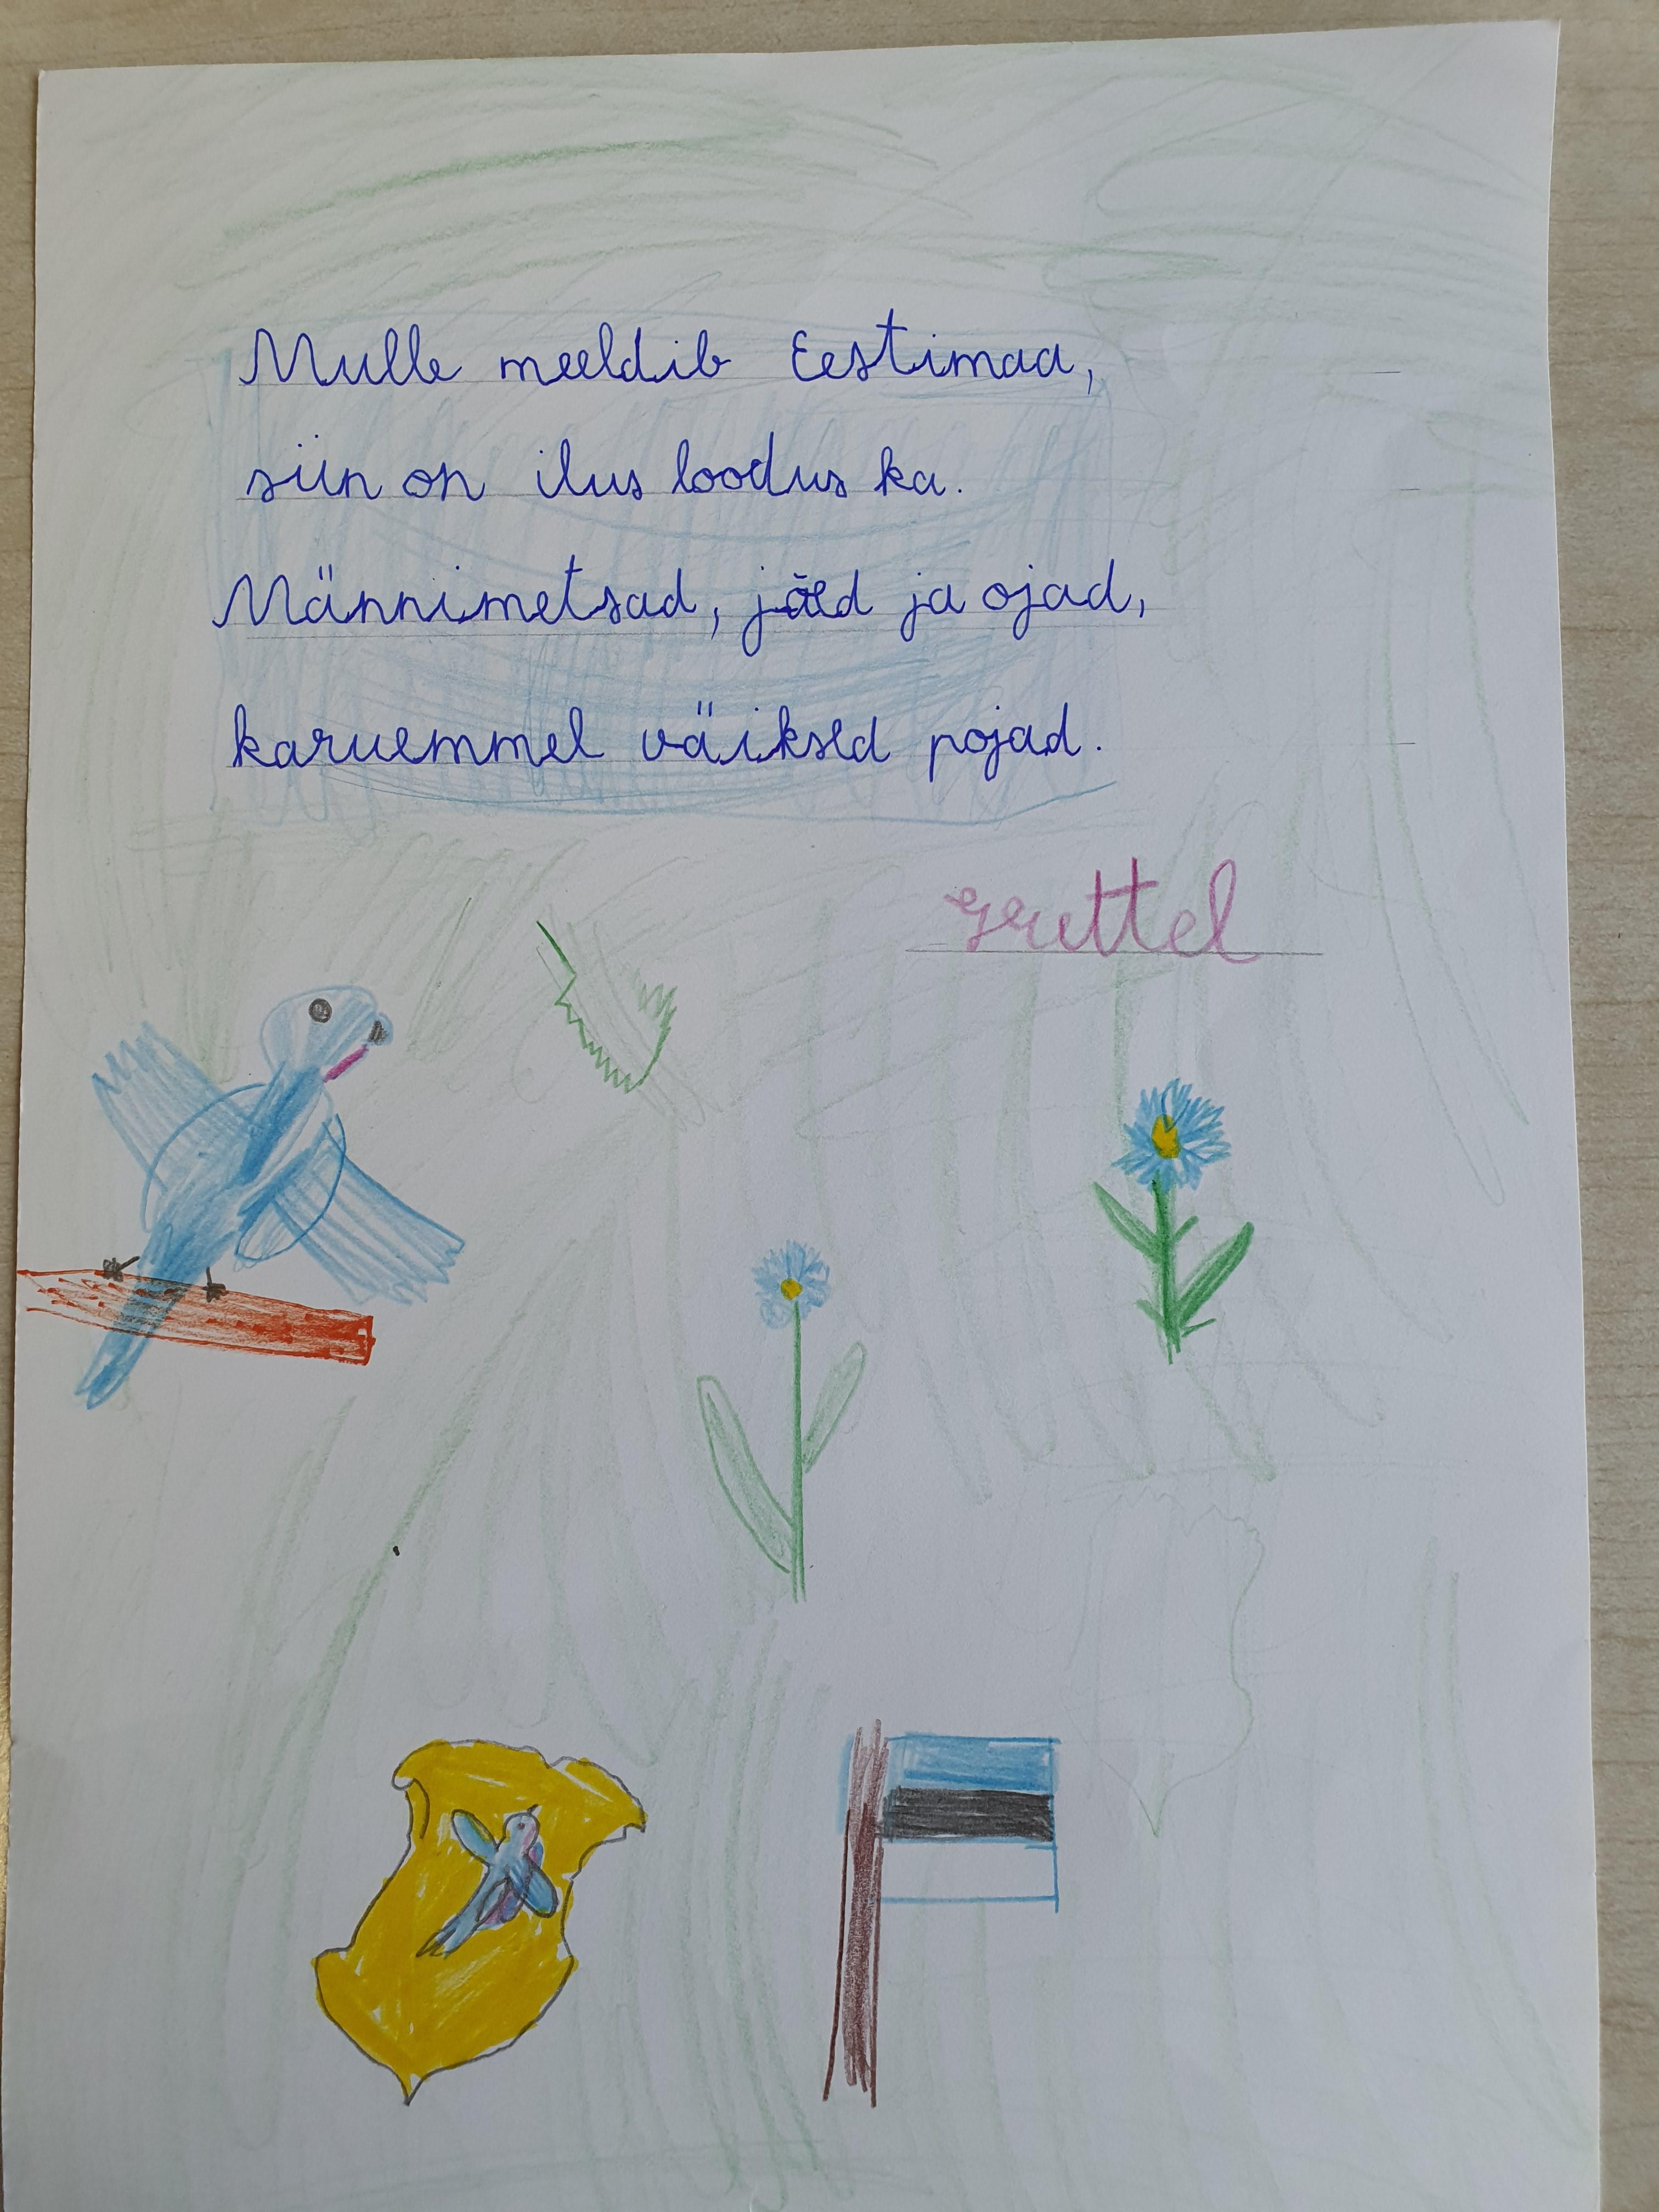 Mulle meeldib Eestimaa,
siin on ilus loodus ka.
Männimetsad, jõed ja ojad,
karuemmel väiksed pojad.
grettel